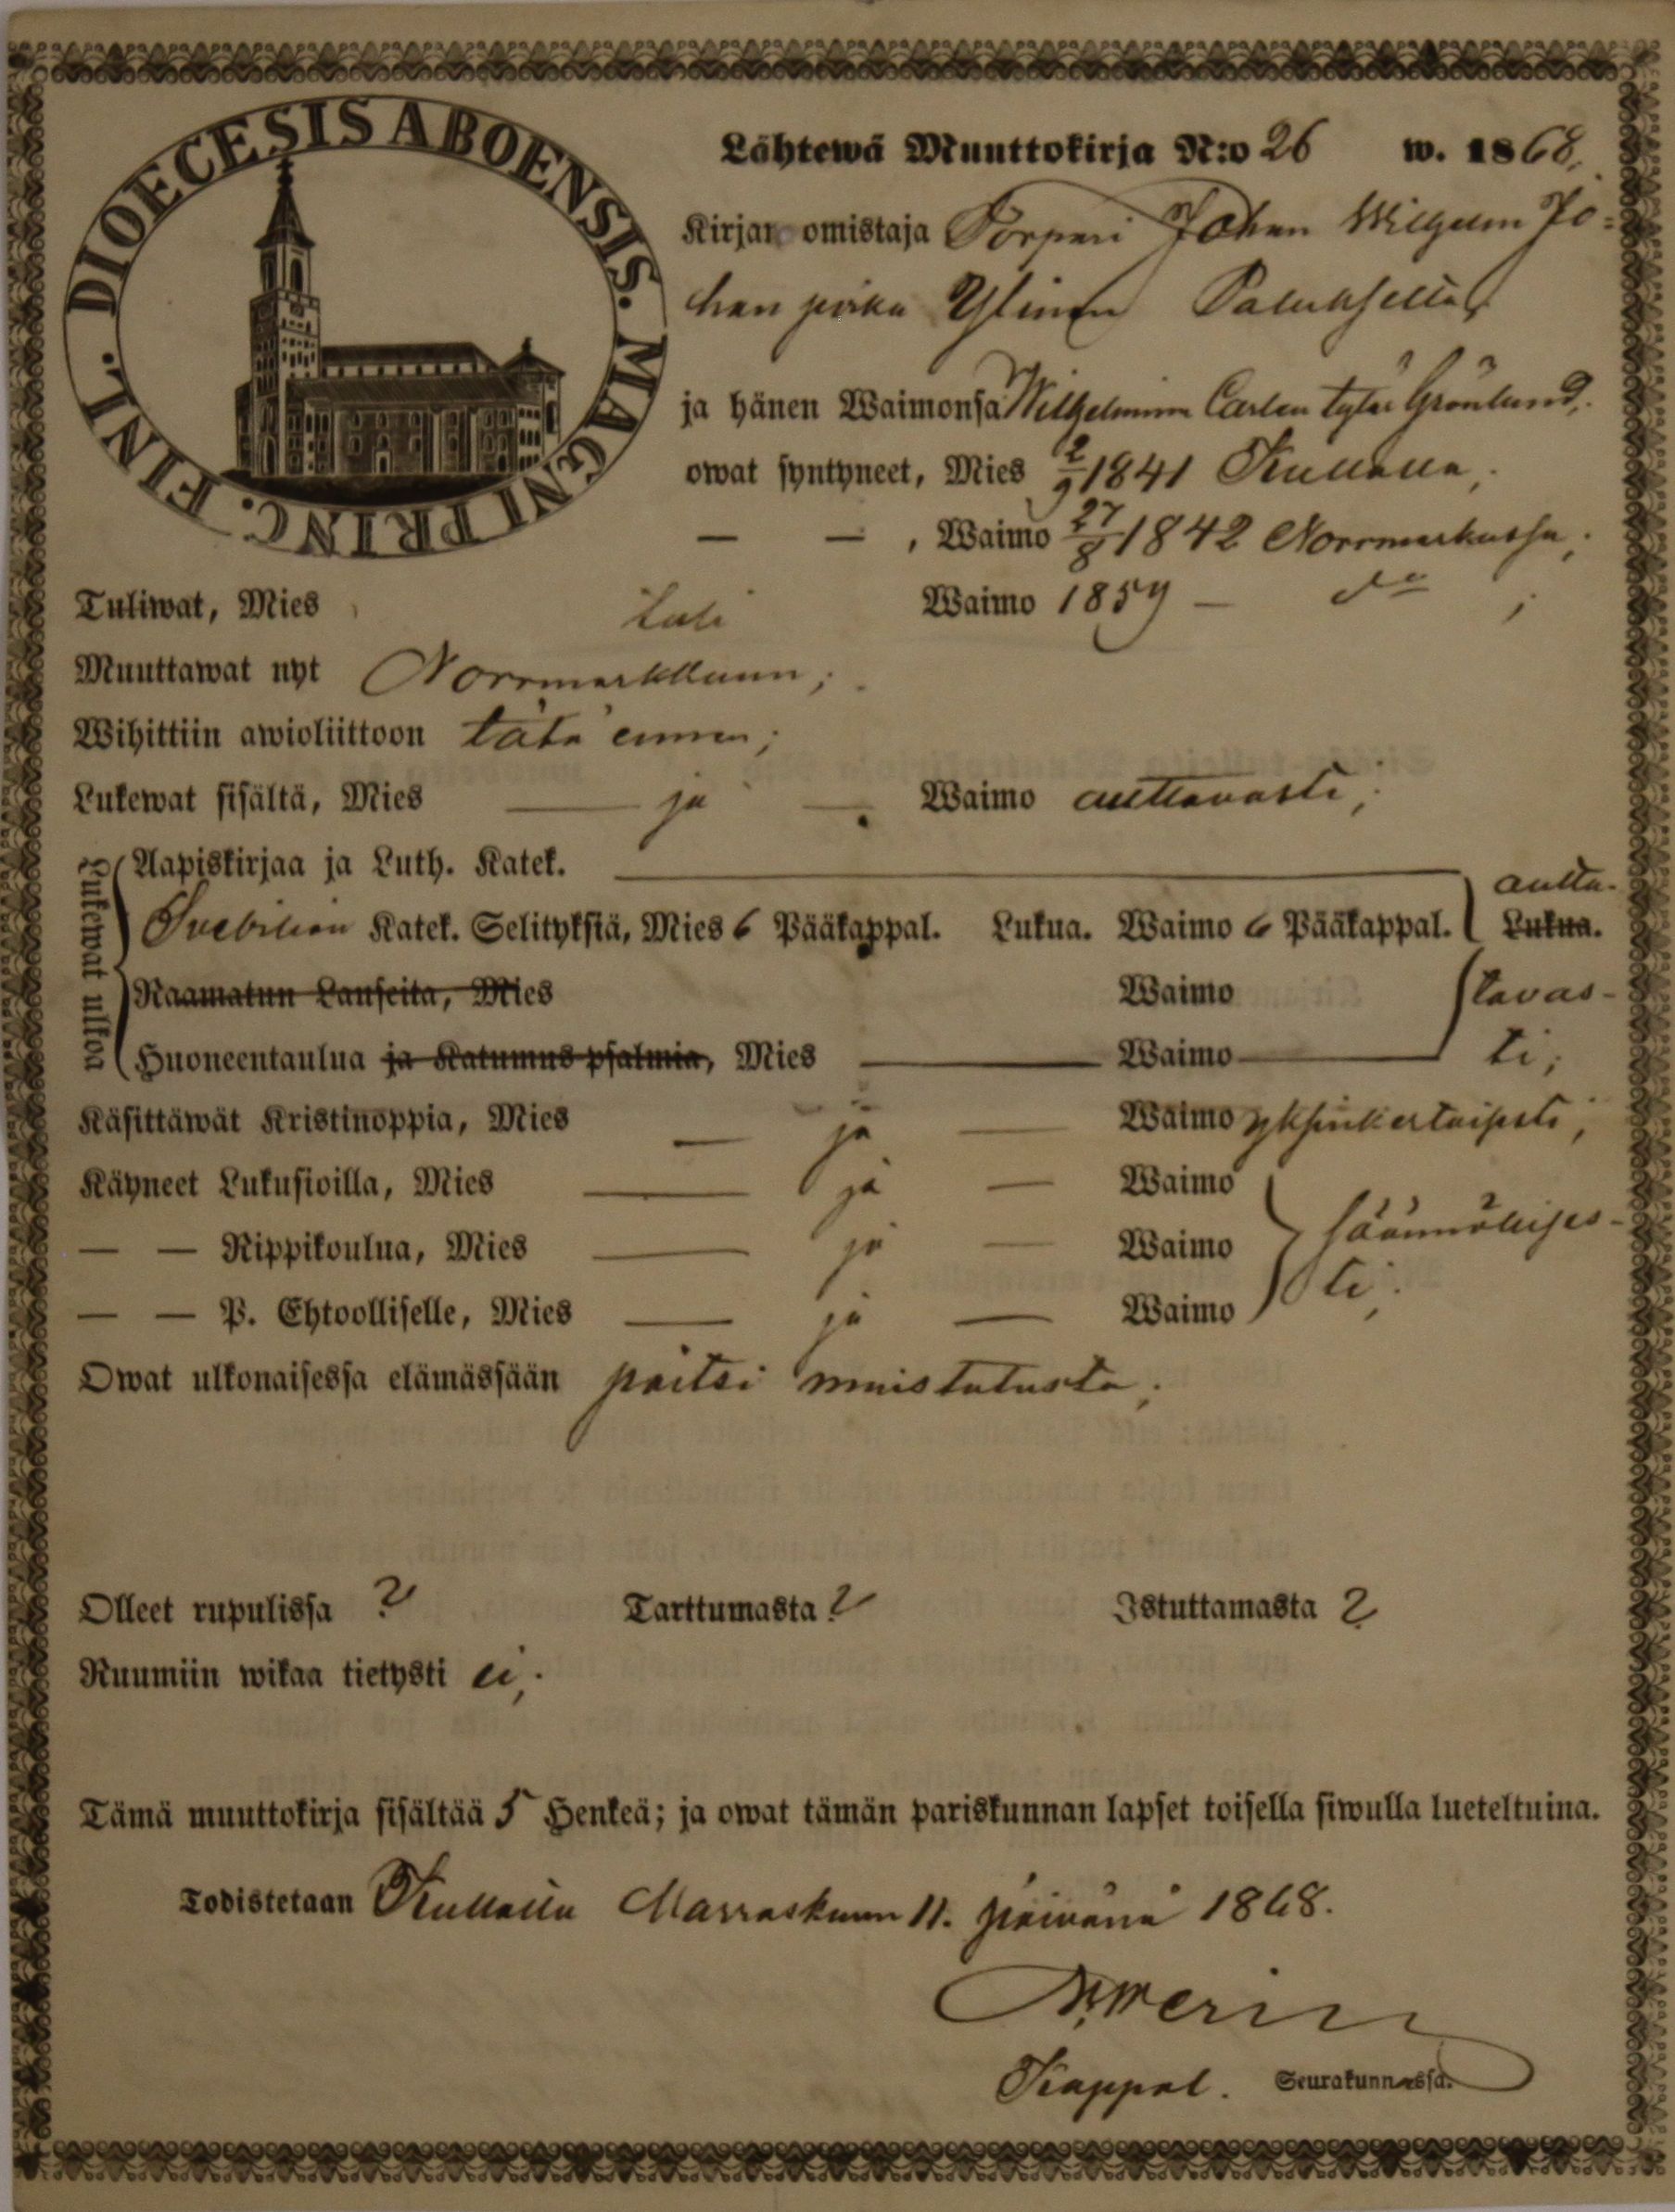 DIOECESIS ABOENSIS. MAGNI PRINC. FINL.
Lähtewä Muuttokirja N:o 26 w. 1868.
Kirjan omistaja Torpari Johan Wilhelm Jo=
han poika Ylinen Paluksella,
ja hänen Waimonsa Wilhelmina Carlen tytär Grönlund,
owat syntyneet, Mies 2/9 1841 Kullalla,
— — , Waimo 27/8 1842 Norrmarkussa,
Tuliwat, Mies tuli Waimo 1859 — do ;
Muuttawat nyt Norrmarkkuun;
Wihittiin awioliittoon tätä ennen;
Lukewat sisältä, Mies — ja — Waimo auttavasti;
Lukewat ulkoa
Aapiskirjaa ja Luth. Katek.
autta-
Svebiliön Katek. Selityksiä, Mies 6 Pääkappal. Lukua. Waimo 6 Pääkappal. Lukua.
Raamatun Lauseita, Mies Waimo tavas-
Huoneentaulua ja Katumus psalmia, Mies — Waimo — ti;
Käsittäwät Kristinoppia, Mies — ja — Waimo yksinkertaisesti;
Käyneet Lukusioilla, Mies — ja — Waimo
— — Rippikoulua, Mies — ja — Waimo säännöllises-
— — P. Ehtoolliselle, Mies — ja — Waimo ti;
Owat ulkonaisessa elämässään paitsi muistutusta;
Olleet rupulissa ? Tarttumasta ? Istuttamasta ?
Ruumiin wikaa tietysti ei;
Tämä muuttokirja sisältää 5 Henkeä; ja owat tämän pariskunnan lapset toisella siwulla lueteltuina.
Todistetaan Kullalla Marraskuun 11. päivänä 1868.
Kappal. Seurakunnassa.